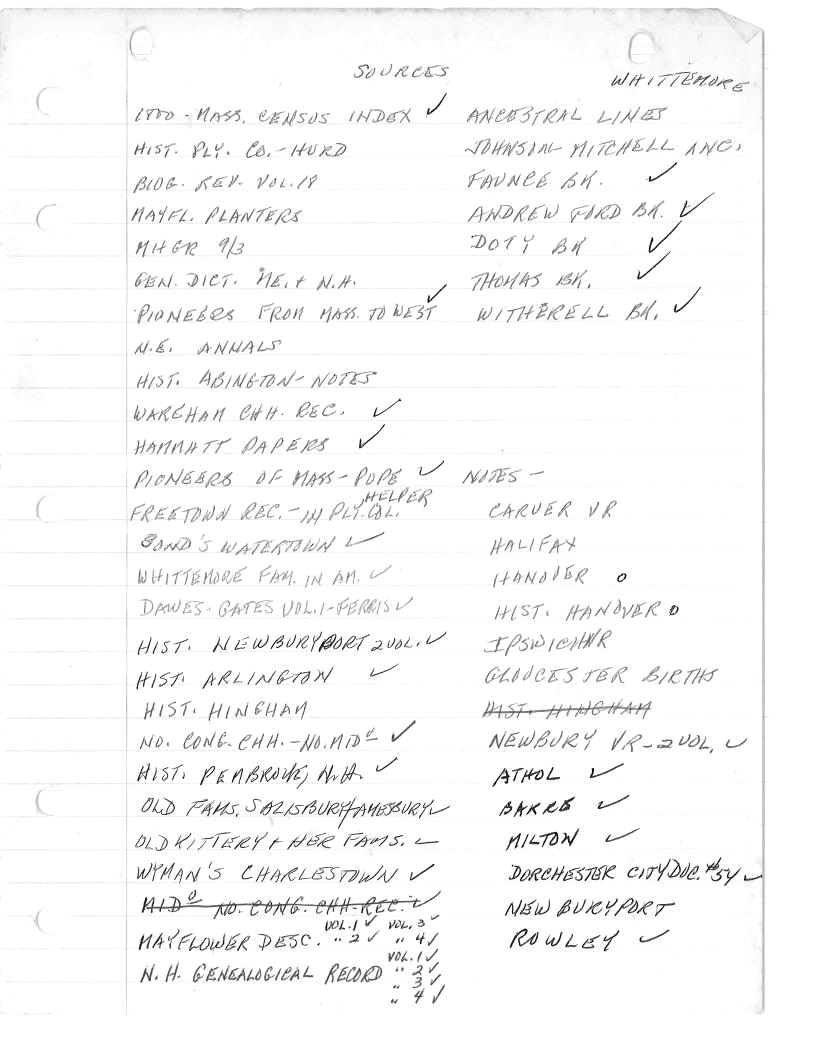 SOURCES
WHITTEMORE
1800 - MASS. CENSUS INDEX ✓
HIST. PLY. CO. - HURD
BIOG. REV. VOL. 18
MAYFL. PLANTERS
MHGR 9/3
GEN. DICT. ME. + N.H.
PIONEERS FROM MASS. TO WEST ✓
N.E. ANNALS
HIST. ABINGTON - NOTES
WAREHAM CHH. REC. ✓
HAMMATT PAPERS ✓
PIONEERS OF MASS - POPE ✓
FREETOWN REC. - IN PLY. COL. HELPER
BOND'S WATERTOWN ✓
WHITTEMORE FAM. IN AM. ✓
DAWES - GATES VOL. 1 - FERRIS ✓
HIST. NEWBURYPORT 2 VOL. ✓
HIST. ARLINGTON ✓
HIST. HINGHAM
NO. CONG. CHH. - NO. MIDº ✓
HIST. PEMBROKE, N.H. ✓
OLD FAMS. SALISBURY/AMESBURY ✓
OLD KITTERY + HER FAMS. ✓
WYMAN'S CHARLESTOWN ✓
MIDº NO. CONG. CHH - REC. ✓
MAYFLOWER DESC. VOL. 1 ✓ VOL. 3 ✓
" 2 ✓ " 4 ✓
N.H. GENEALOGICAL RECORD VOL. 1 ✓
" 2 ✓
" 3 ✓
" 4 ✓
ANCESTRAL LINES
JOHNSON - MITCHELL ANC.
FAUNCE BK. ✓
ANDREW FORD BK. ✓
DOTY BK ✓
THOMAS BK. ✓
WITHERELL BK. ✓
NOTES -
CARVER VR
HALIFAX
HANOVER o
HIST. HANOVER o
IPSWICH VR
GLOUCESTER BIRTHS
HIST. HINGHAM
NEWBURY VR - 2 VOL. ✓
ATHOL ✓
BARRE ✓
MILTON ✓
DORCHESTER CITY DOC. #54 ✓
NEWBURYPORT
ROWLEY ✓